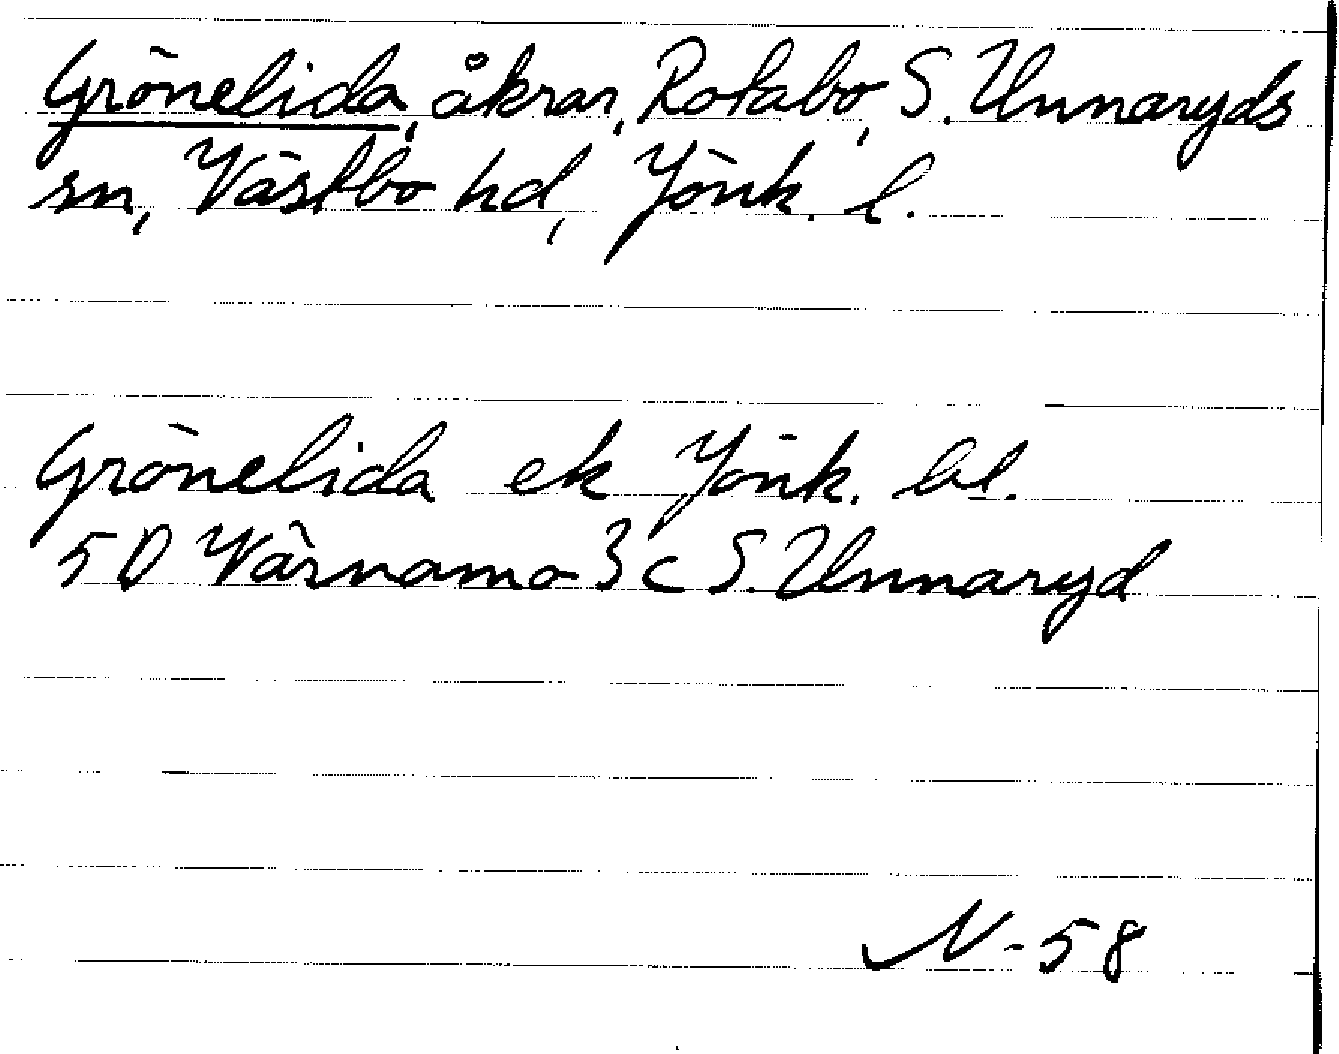 Grönelida, åkrar, Rotabo, S. Unnaryds
sn, Västbo hd, Jönk. l.
Grönelida ek Jönk. bl.
5D Värnamo 3c S. Unnaryd
N-58